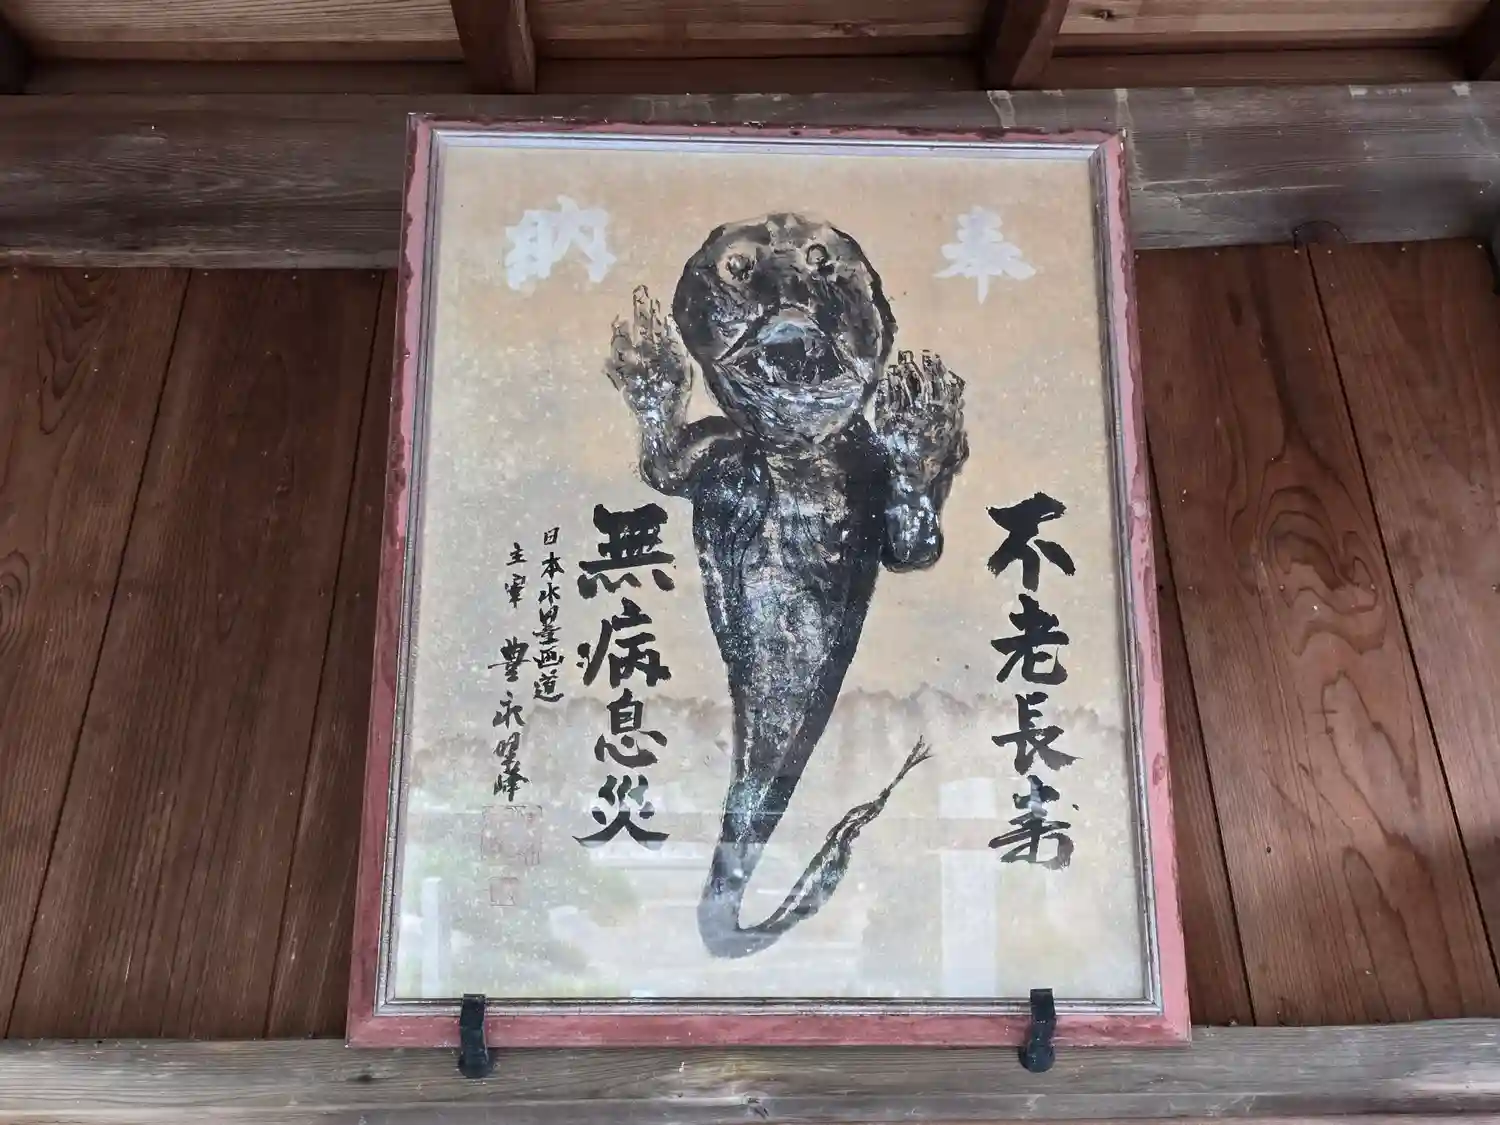 奉納
不老長寿
無病息災
日本水墨画道
主宰 豊永聖峰